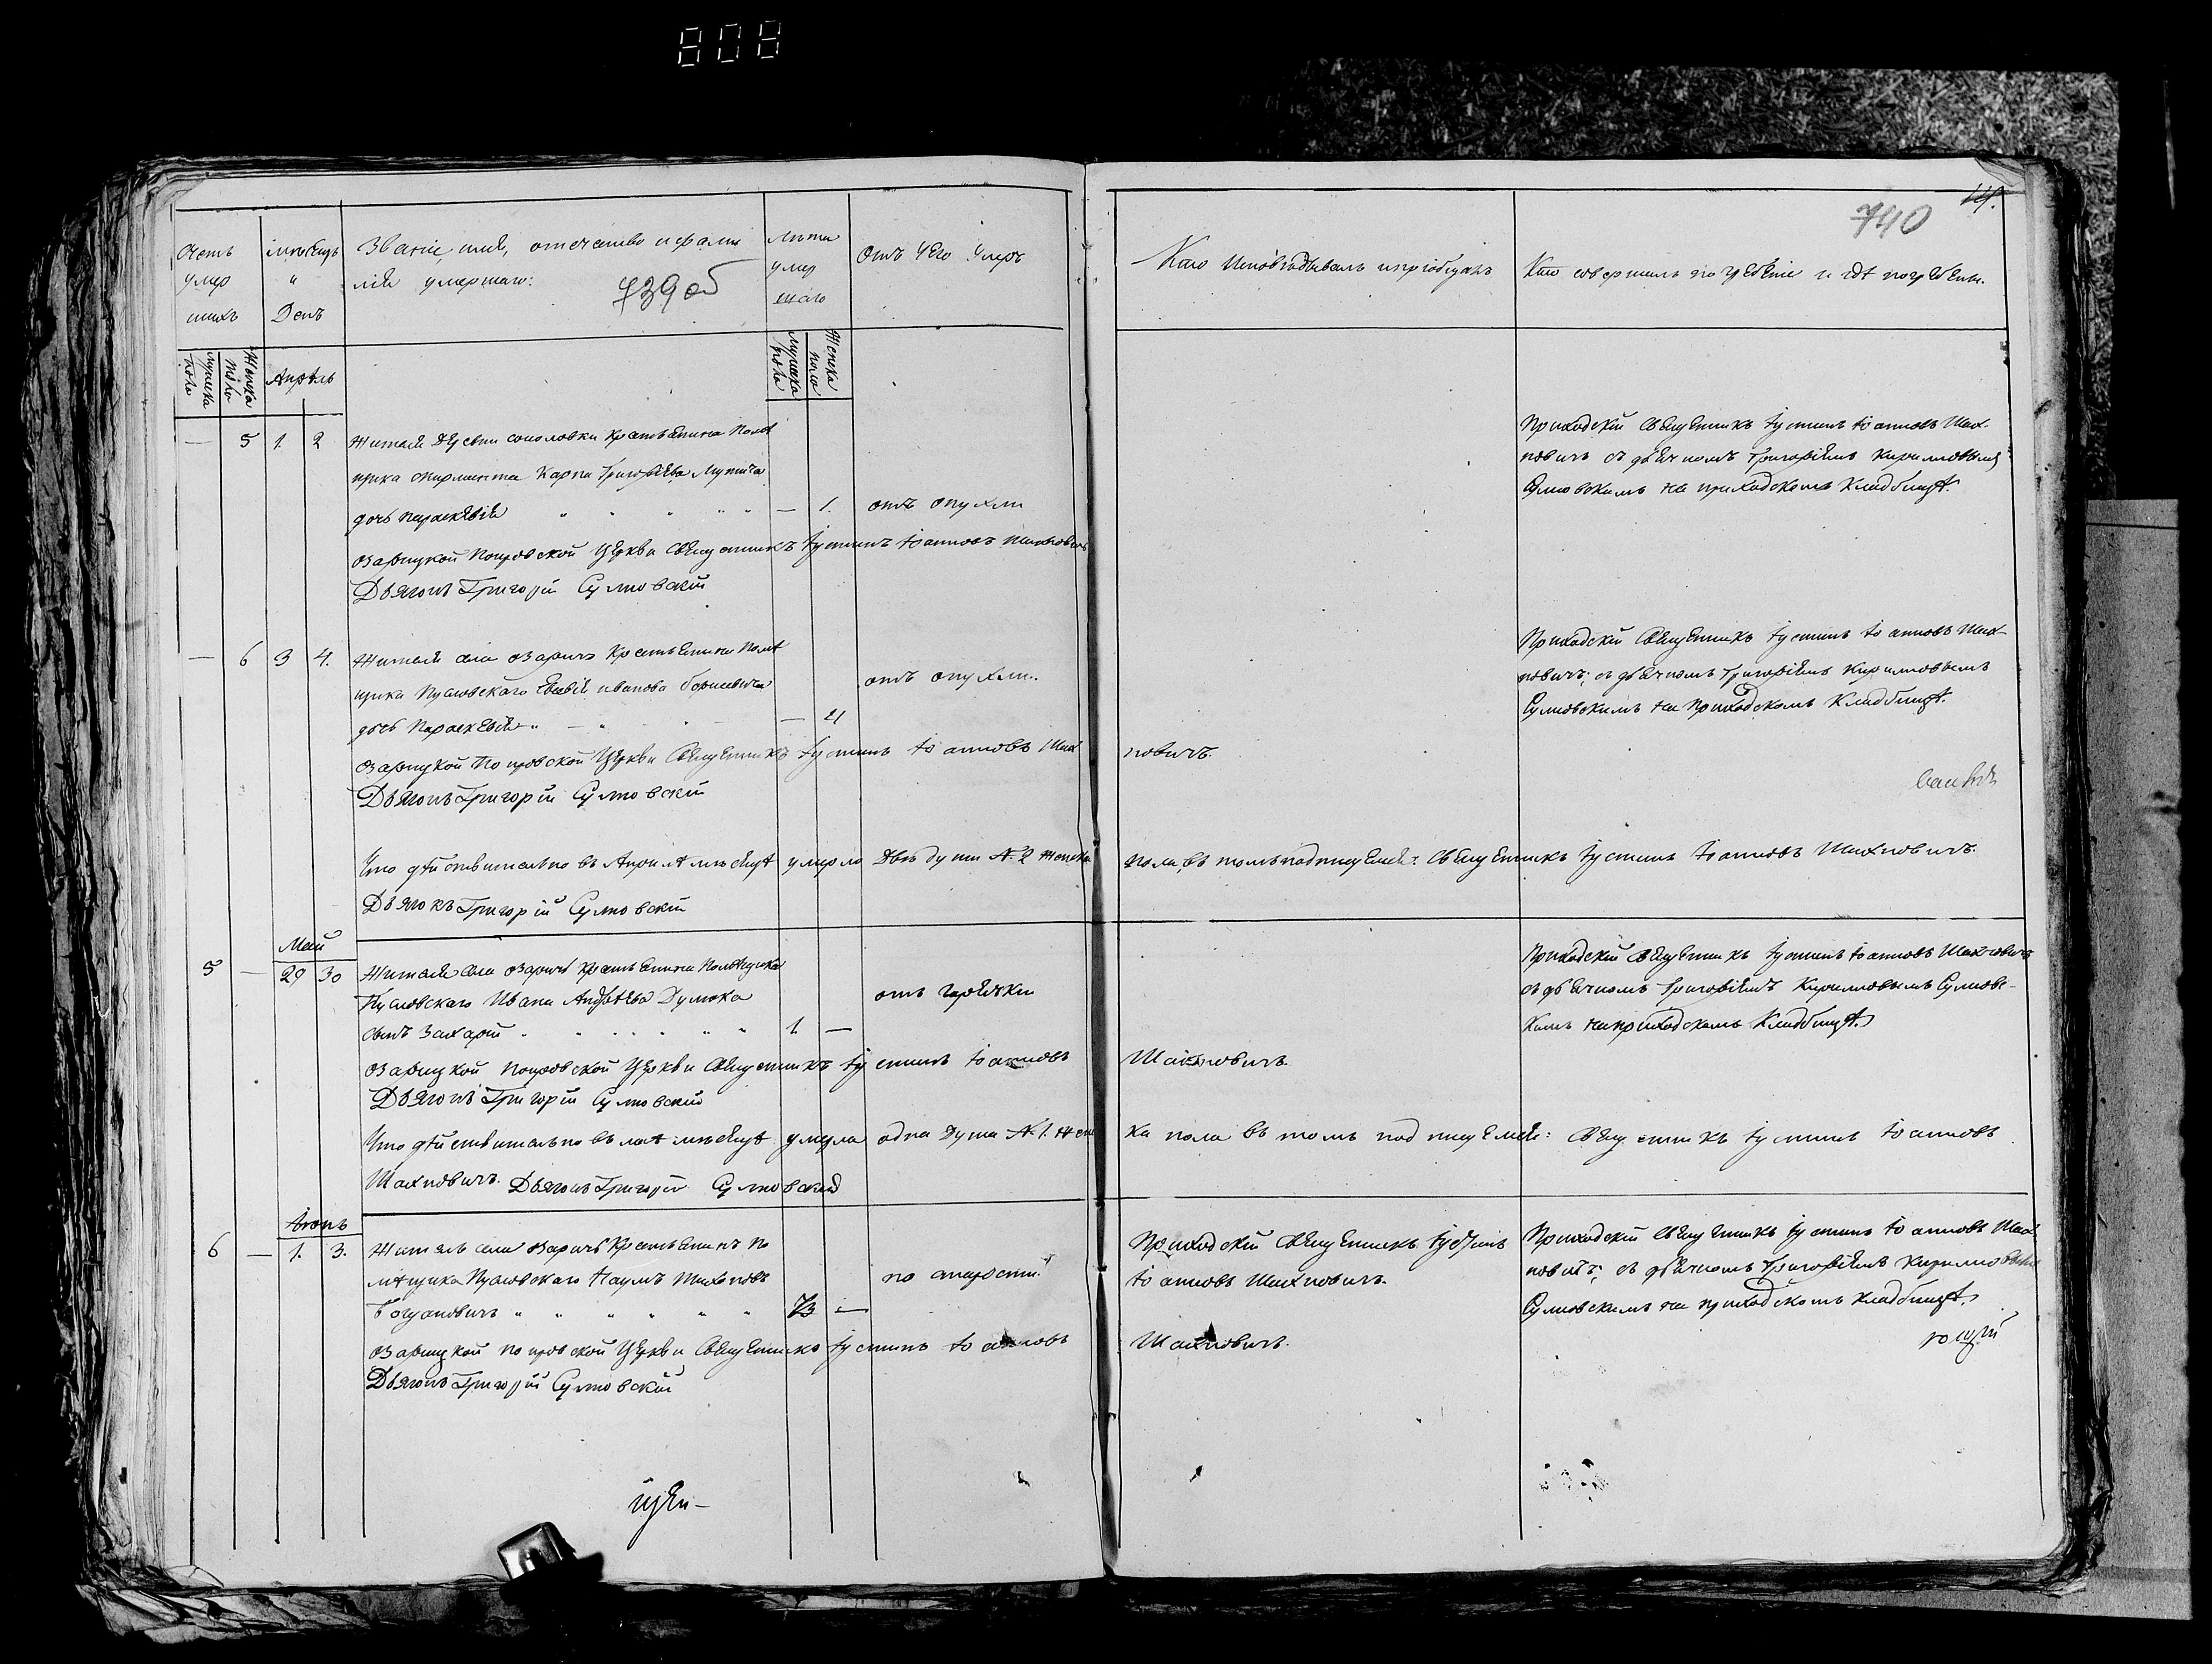 808
14.
740
Счетъ умер шихъ
мѣсяцъ и День
Званіе, имя, отечество и фами
лія умершаго:
739 об
Лѣта умер шаго
Отъ Чего Умеръ
Кто Исповѣдывалъ и пріобщалъ
Кто совершалъ погребеніе и гдѣ погребены.
мужска пола
Женска пола
Апрѣль
мужска пола
Женска пола
— 5 1 2 Жителя Деревни соколовки Крестьянина Помѣ
щика Карпа Григорьева
дочь Параскевія — 1. отъ опухли
Приходскій Священникъ Іустинъ Іоанновъ Шах-
новичъ съ дьячкомъ Григоріемъ Кириловымъ
Сулковскимъ на приходскомъ Кладбищѣ.
Озарицкой Покровской Церкви Священникъ Іустинъ Іоанновъ Шахновичъ
Дьячокъ Григорій Сулковскій
— 6 3 4. Жителя села Озаричъ Крестьянина Помѣ
щика Пусловскаго Иванова
дочь Параскевія — 21
отъ опухли.
Приходскій Священникъ Іустинъ Іоанновъ Шах-
новичъ; съ дьячкомъ Григоріемъ Кириловымъ
Сулковскимъ на Приходскомъ Кладбищѣ.
Озарицкой Покровской Церкви Священникъ Іустинъ Іоанновъ Шах новичъ.
Дьячокъ Григорій Сулковскій
Что дѣйствительно въ Априлѣ мѣсяцѣ умерло Двѣ души № 2 женска пола, въ томъ подписуемся: Священникъ Іустинъ Іоанновъ Шахновичъ.
Дьячокъ Григорій Сулковскій
Май
5 — 29 30 Жителя села Озаричъ Крестьянина Помѣщика
Пусловскаго Ивана Андрѣева Думока
сынъ Захарій 1. —
отъ горячки
Приходскій Священникъ Іустинъ Іоанновъ Шахновичъ
съ дьячкомъ Григоріемъ Кириловымъ Сулковс-
кимъ на приходскомъ Кладбищѣ.
Озарицкой Покровской Церкви Священникъ Іустинъ Іоанновъ Шахновичъ.
Дьячокъ Григорій Сулковскій
Что дѣйствительно въ маѣ мѣсяцѣ умерла одна Душа № 1. жен ска пола въ томъ подписуемся: Священникъ Іустинъ Іоанновъ
Шахновичъ. Дьячокъ Григорій Сулковскій
Іюнь
6 — 1. 3. Житель села Озаричъ Крестьянинъ По
мѣщика Пусловскаго Наумъ
Богдановичъ 73 —
по старости.
Приходскій Священникъ Іустинъ
Іоанновъ Шахновичъ.
Приходскій Священникъ Іустинъ Іоанновъ Шах
новичъ; съ дьячкомъ Григоріемъ Кириловымъ
Сулковскимъ на приходскомъ кладбищѣ.
Озарицкой Покровской Церкви Священникъ Іустинъ Іоанновъ Шахновичъ.
Дьячокъ Григорій Сулковскій